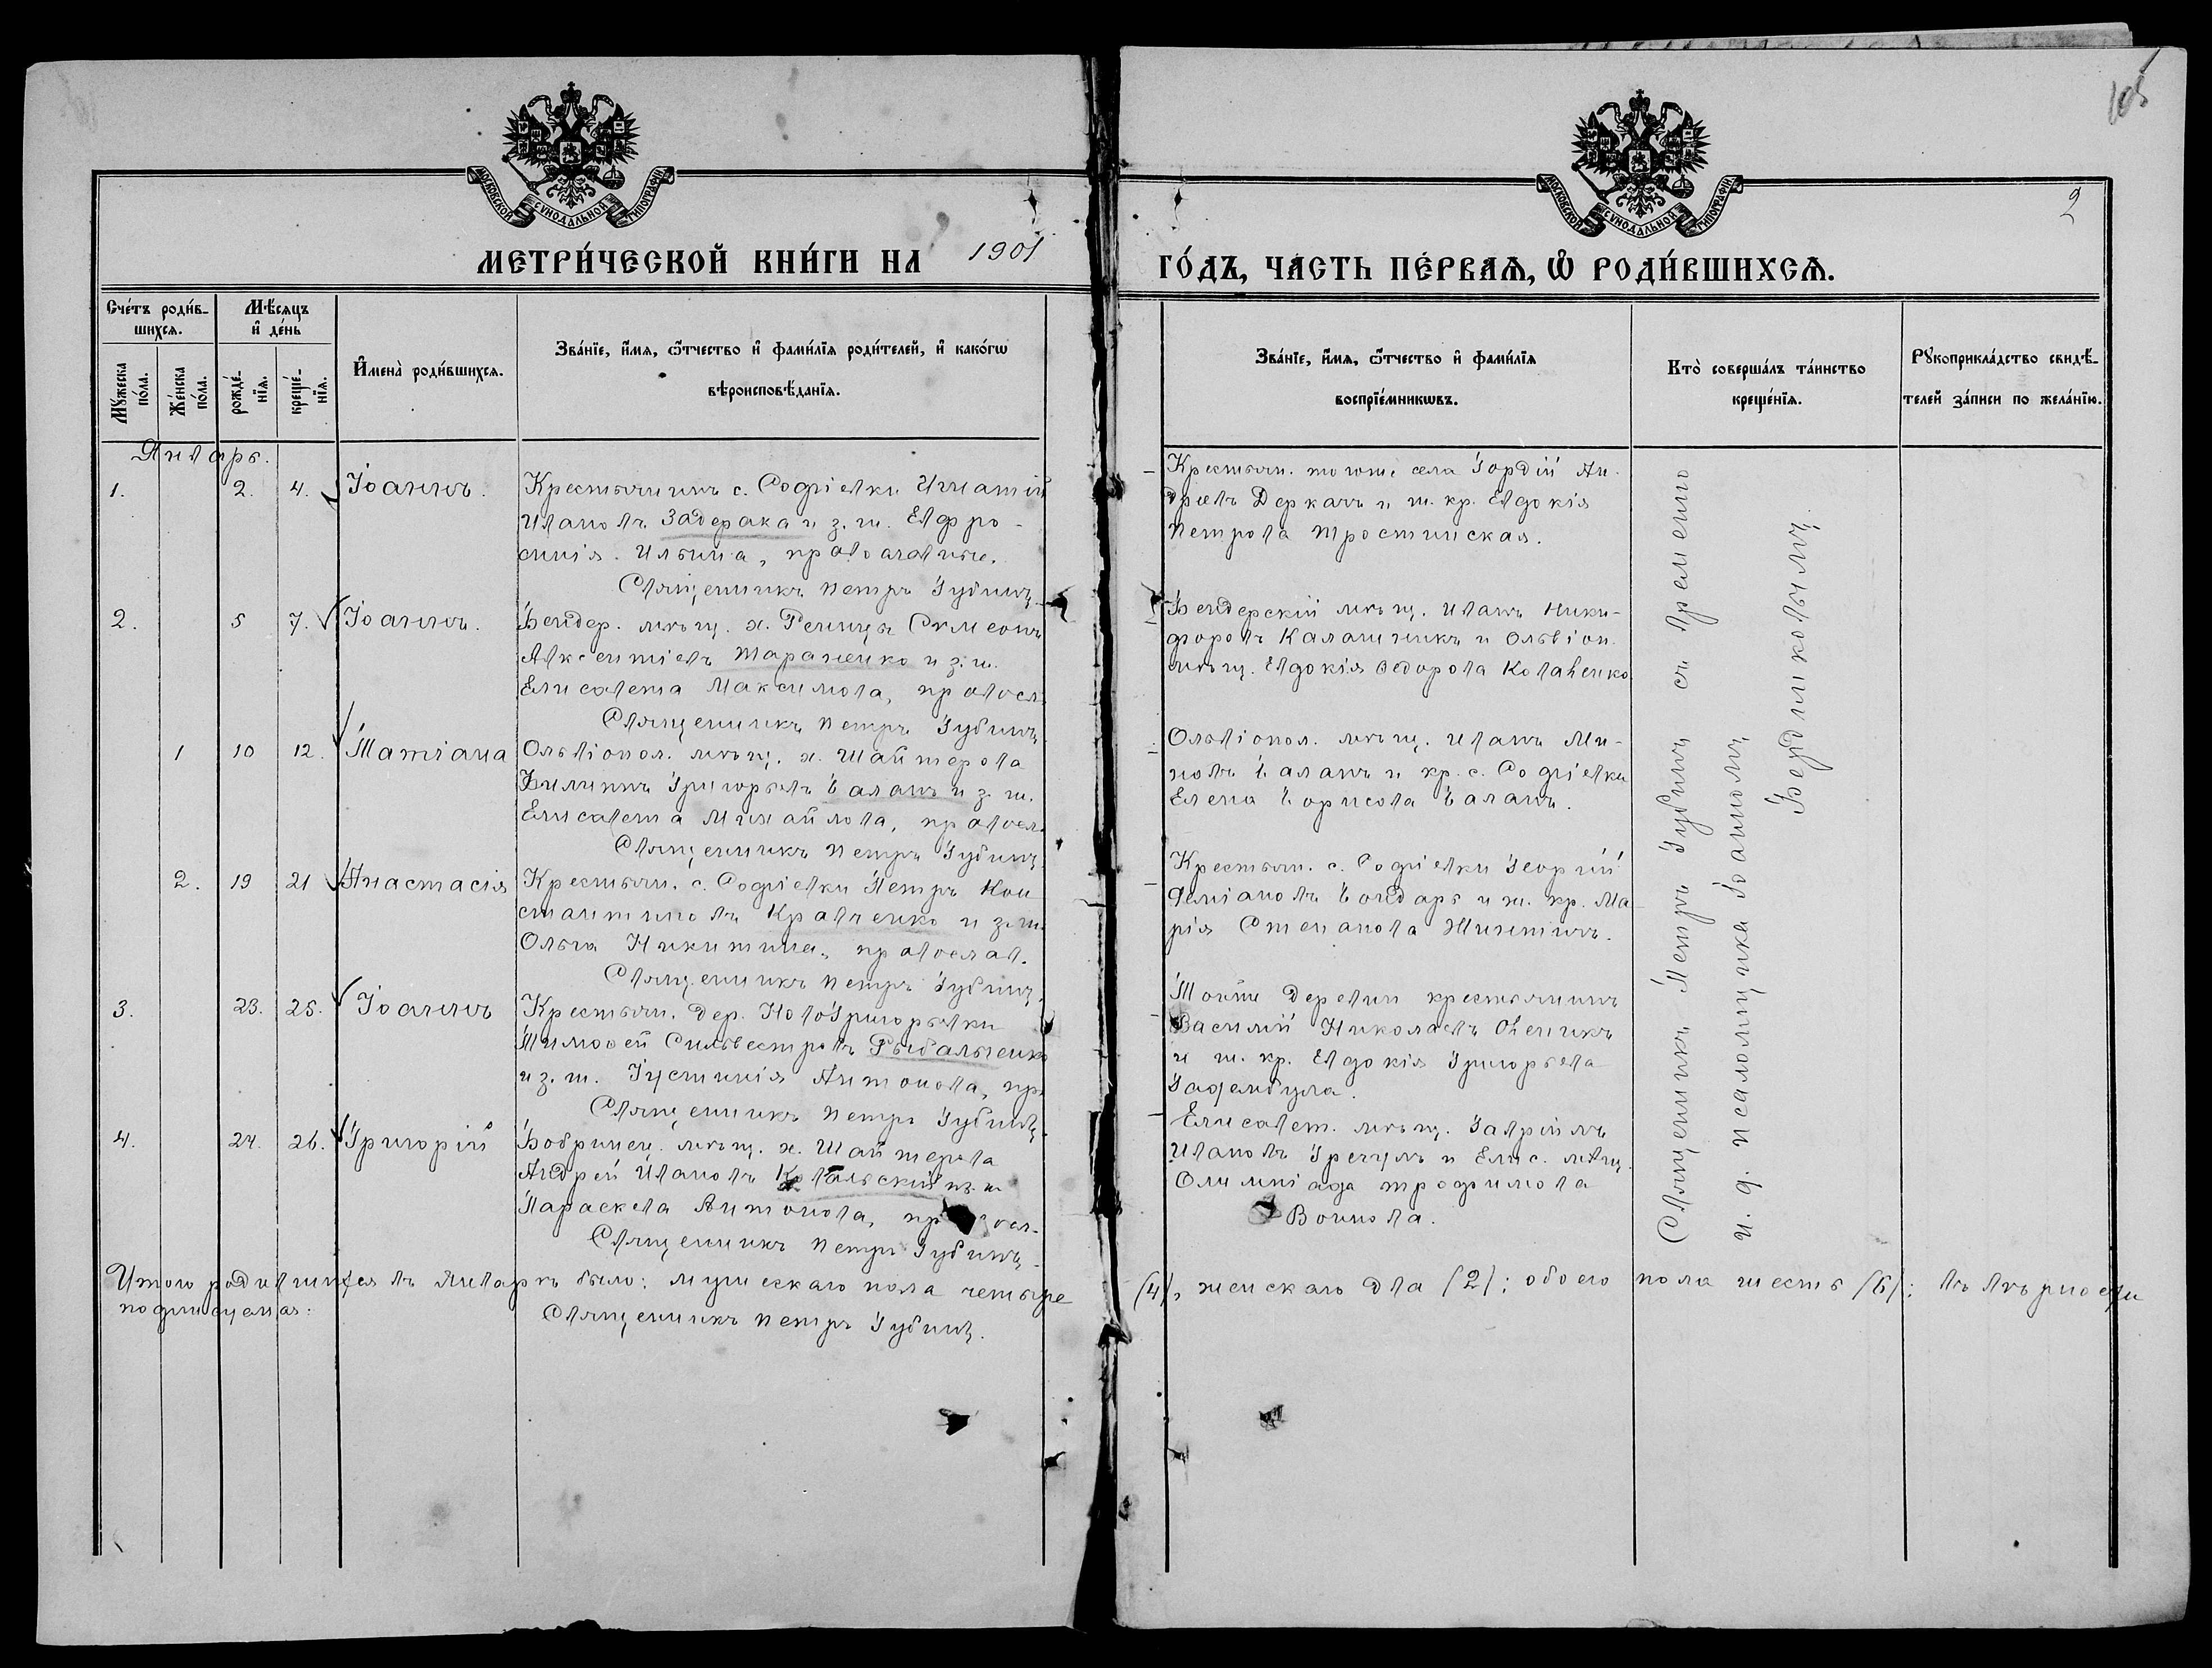 105
2
МОСКОВСКОЙ СѴНОДАЛЬНОЙ ТИПОГРАФІИ
МОСКОВСКОЙ СѴНОДАЛЬНОЙ ТИПОГРАФІИ
МЕТРИ́ЧЕСКОЙ КНИ́ГИ НА 1901 ГО́ДЪ, ЧА́СТЬ ПЕ́РВАЯ, Ѡ РОДИ́ВШИХСЯ.
Сче́тъ роди́в-
шихся.
Мѣ́сяцъ
и҆ де́нь
Мꙋ́жеска по́ла.
Же́нска по́ла.
рожде́-
нїя.
креще́-
нїя.
И҆мена̀ роди́вшихся.
Зва́нїе, и҆́мя, ѻ҆́тчество и҆ фами́лїя роди́телей, и҆ како́гѡ
вѣроисповѣ́данїя.
Зва́нїе, и҆́мя, ѻ҆́тчество и҆ фами́лїя
воспрїе́мникѡвъ.
Кто̀ соверша́лъ та́инство
креще́нїя.
Рꙋкоприкла́дство свидѣ́-
телей за́писи по жела́нїю.
Январь.
1. 2. 4. Іоаннъ.
Крестьянинъ с. Софіевки Игнатій
Ивановъ Задерака и з. ж. Евфро-
синія Ильина, православные.
Священникъ Петръ Зубинъ
Крестьян. того же села Гордій Ан-
дреевъ Деркачъ и ж. кр. Евдокія
Петрова Тростинская.
2. 5 7. Іоаннъ.
Бендер. мѣщ. х. Реницы Симеонъ
Авксентіевъ Тараненко и з. ж.
Елисавета Максимова, правосл.
Священникъ Петръ Зубинъ
Бендерскій мѣщ. Иванъ Ники-
форовъ Калашникъ и Ольвіоп.
мѣщ. Евдокія Ѳедорова Коваленко
1 10 12. Татіана
Ольвіопол. мѣщ. х. Шайтерова
Филиппъ Григорьевъ Баланъ и з. ж.
Елисавета Михайлова, правосл.
Священникъ Петръ Зубинъ
Ольвіопол. мѣщ. Иванъ Ми-
новъ Баланъ и кр. с. Софіевки
Елена Борисова Баланъ.
2. 19 21 Анастасія
Крестьян. с. Софіевки Петръ Кон
стантиновъ Кравченко и з. ж.
Ольга Никитина, православ.
Священникъ Петръ Зубинъ.
Крестьян. с. Софіевки Георгій
Даміановъ Бондарь и ж. кр. Ма-
рія Степанова
3. 23. 25. Іоаннъ
Крестьян. дер. НовоГригорьевки
Тимоѳей Сильвестровъ Рыбальченко
и з. ж. Іустинія Антонова, пр.
Священникъ Петръ Зубинъ.
Той же деревни крестьянинъ
Василій Николаевъ
и ж. кр. Евдокія Григорьева
4. 24. 26. Григорій
Бобринец. мѣщ. х. Шайтерова
Андрей Ивановъ Ковальскій и з. ж
Параскева Антонова, правосл.
Священникъ Петръ Зубинъ
Елисавет. мѣщ. Гавріилъ
Ивановъ и Елис. мѣщ.
Олимпіада Трофимова
Воинова.
Священникъ Петръ Зубинъ съ временно
и. д. псаломщика Іоанномъ
Бердниковымъ.
Итого родившихся въ Январѣ было: мужескаго пола четыре (4), женскаго два (2); обоего пола шесть (6); въ вѣрности
подписуемся:
Священникъ Петръ Зубинъ.